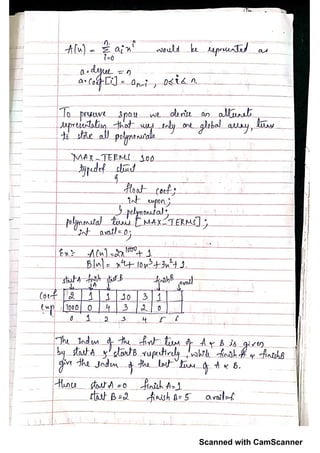 A(x) = Σ aᵢ xⁱ would be represented as
n
i=0
a.degree = n
a.coef[i] = aₙ₋ᵢ , 0≤i≤n
To preserve space we devise an alternate
representation that uses only one global array, terms
to store all polynomials
MAX_TERMS 100
typedef struct
{
float coef;
int expon;
} polynomial;
polynomial terms [MAX_TERMS];
int avail=0;
Ex:- A(x) = 2x¹⁰⁰⁰ + 1
B(x) = x⁴ + 10x³ + 3x² + 1.
startA finishA startB finishB avail
Coef 2 1 1 10 3 1
Exp 1000 0 4 3 2 0
0 1 2 3 4 5 6
The Index of the first term of A & B is given
by startA & startB respectively, while finishA & finishB
give the index of the last term of A & B.
Hence startA=0 finishA=1
startB=2 finishB=5 avail=6
Scanned with CamScanner